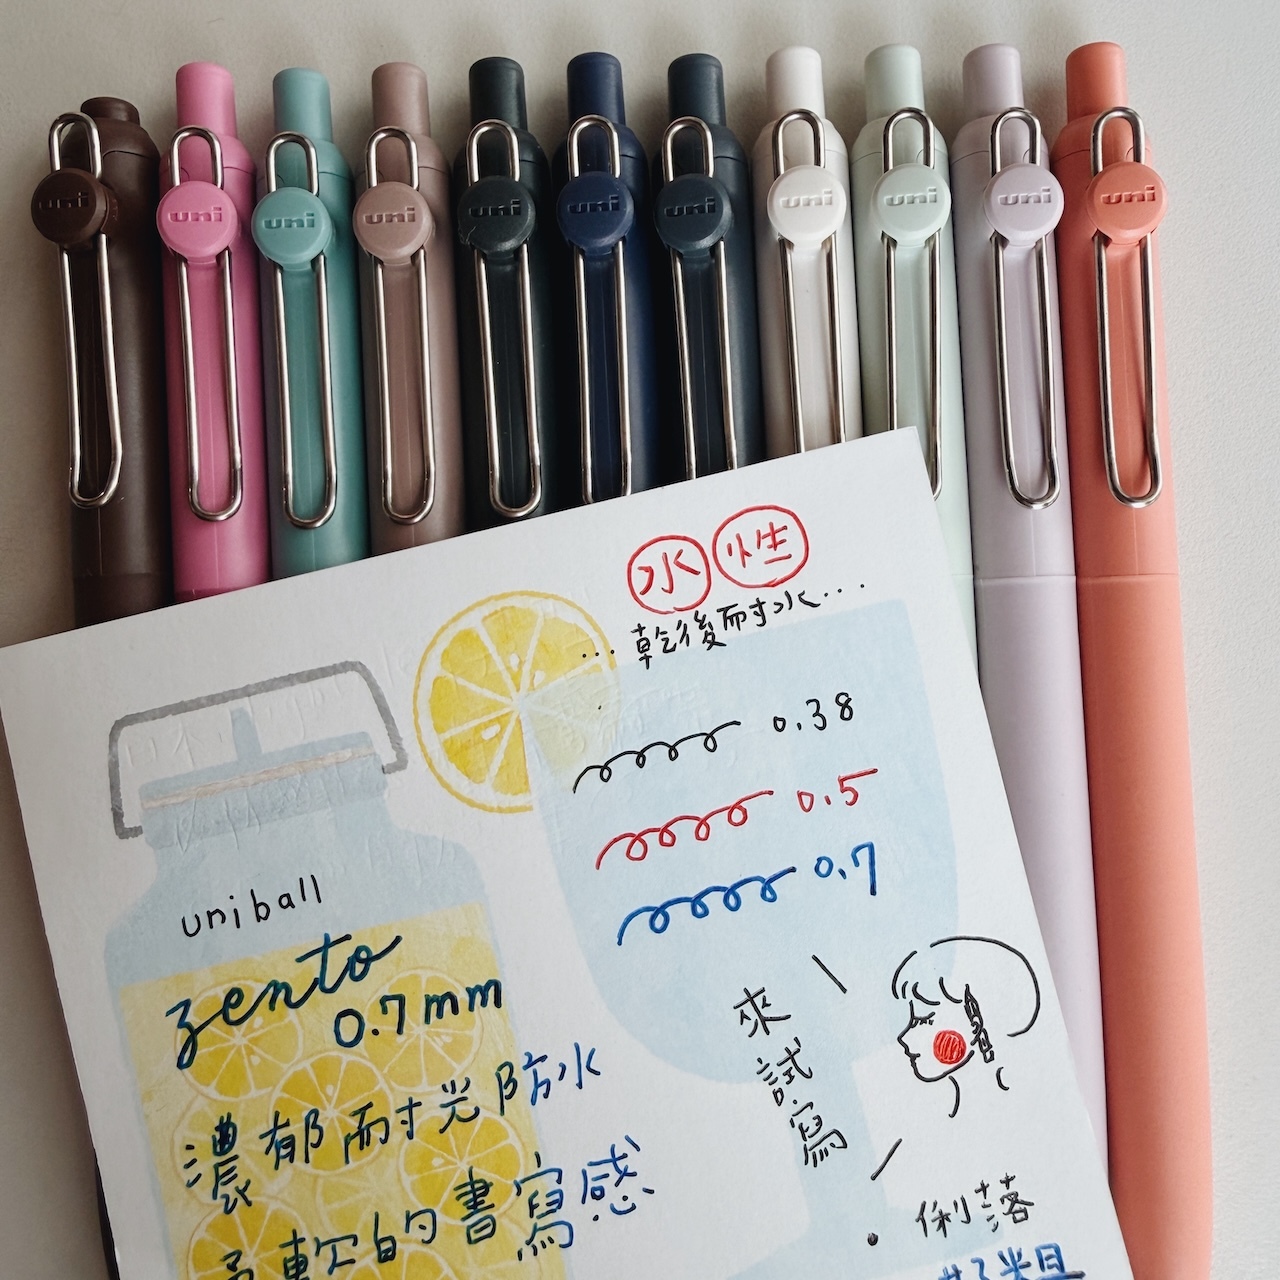 uni uni uni uni uni uni uni uni uni uni uni
水性
...乾後耐水...
0.38
0.5
0.7
uniball
zento
0.7mm
濃郁耐光防水
柔軟的書寫感
來試寫
・俐落